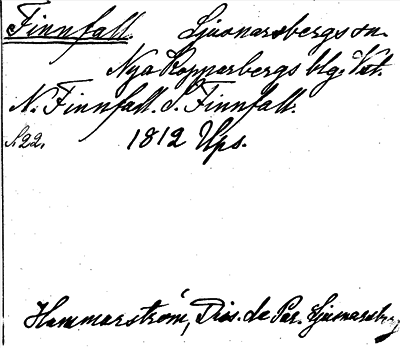 Finnfall. Ljusnarsbergs sn.
Nya Kopparbergs blg. Vstm.
N. Finnfall. S. Finnfall.
S. 22. 1812 Ups.
Hammarström, Diss. de Par. Ljusnarsberg